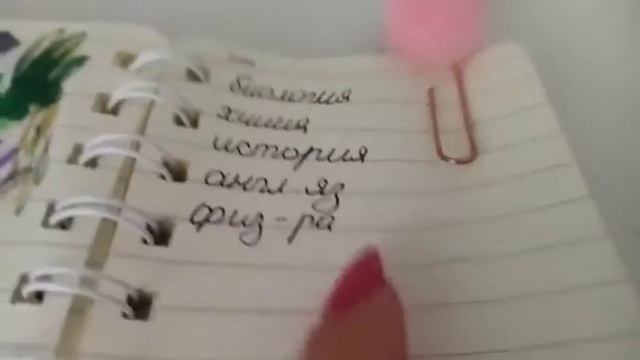 биология
химия
история
англ яз
физ-ра